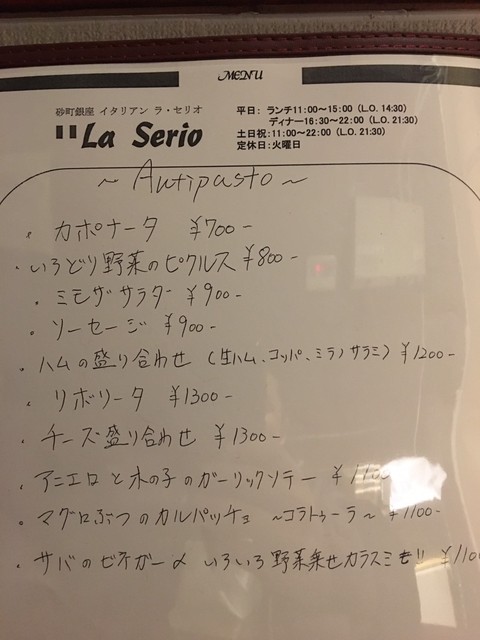 MENU
砂町銀座 イタリアン ラ・セリオ
"La Serio
平日: ランチ11:00～15:00 (L.O. 14:30)
ディナー16:30～22:00 (L.O. 21:30)
土日祝:11:00～22:00 (L.O. 21:30)
定休日:火曜日
～Antipasto～
・カポナータ ¥700-
・いろどり野菜のピクルス ¥800-
・ミモザサラダ ¥900-
・ソーセージ ¥900-
・ハムの盛り合わせ (生ハム、コッパ、ミラノサラミ) ¥1200-
・リボリータ ¥1300-
・チーズ盛り合わせ ¥1300-
・アニエロと木の子のガーリックソテー
・マグロぶつのカルパッチョ ～コラトゥーラ～ ¥1100-
・サバのビネガー〆 いろいろ野菜乗せカラスミも!!